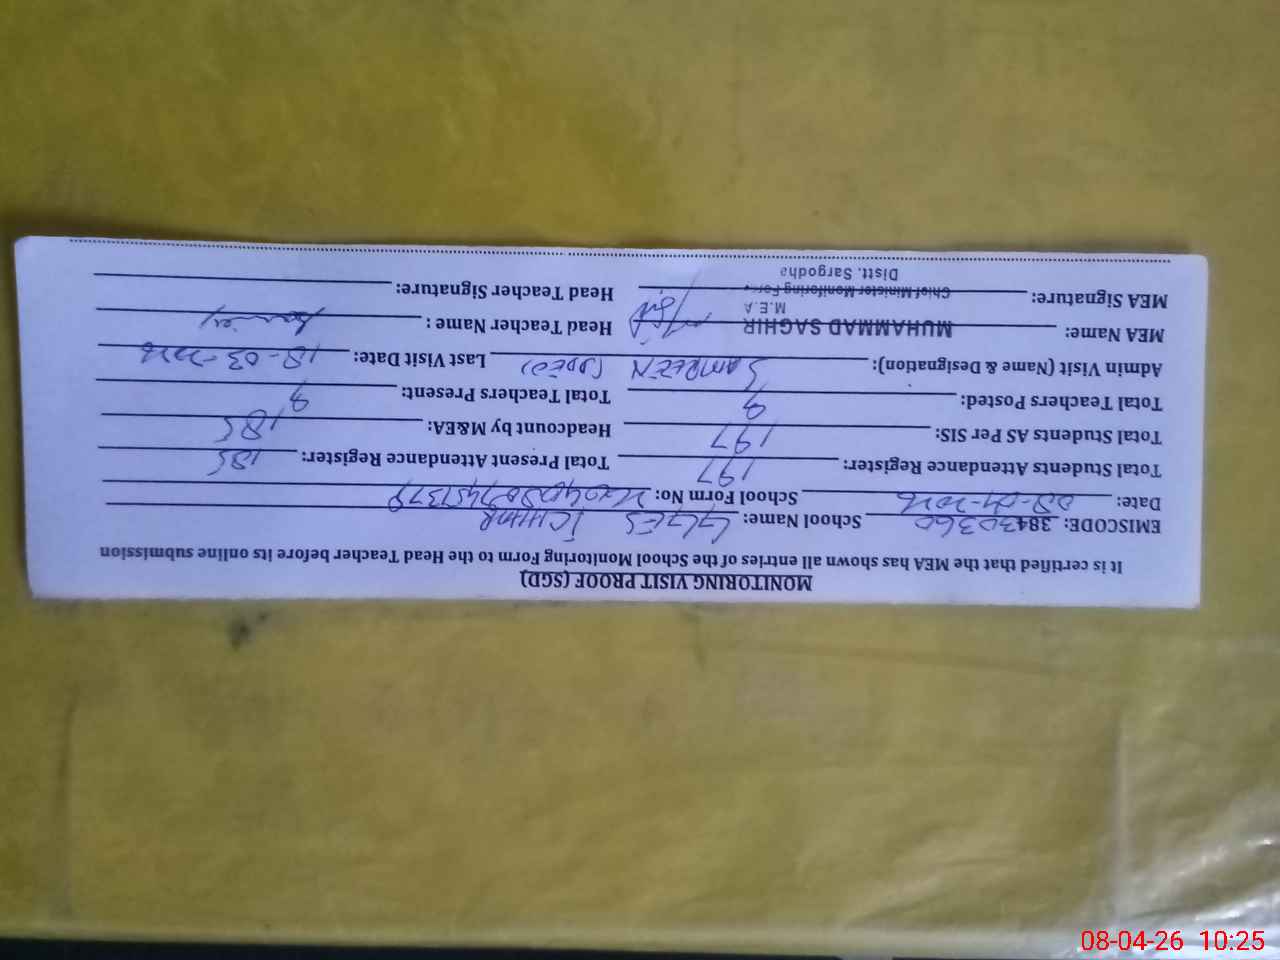 MONITORING VISIT PROOF (SGD)
It is certified that the MEA has shown all entries of the School Monitoring Form to the Head Teacher before its online submission
EMISCODE: 38430360 School Name: GGES ICHHAR
Date: 08-04-2026 School Form No:
Total Students Attendance Register: 197 Total Present Attendance Register: 185
Total Students AS Per SIS: 197 Headcount by M&EA: 185
Total Teachers Posted: 9 Total Teachers Present: 9
Admin Visit (Name & Designation): SAMREEN (DDEO) Last Visit Date: 18-03-2026
MEA Name: MUHAMMAD SAGHIR Head Teacher Name :
M.E.A
MEA Signature: Chief Minister Monitoring Force Head Teacher Signature:
Distt. Sargodha
08-04-26 10:25